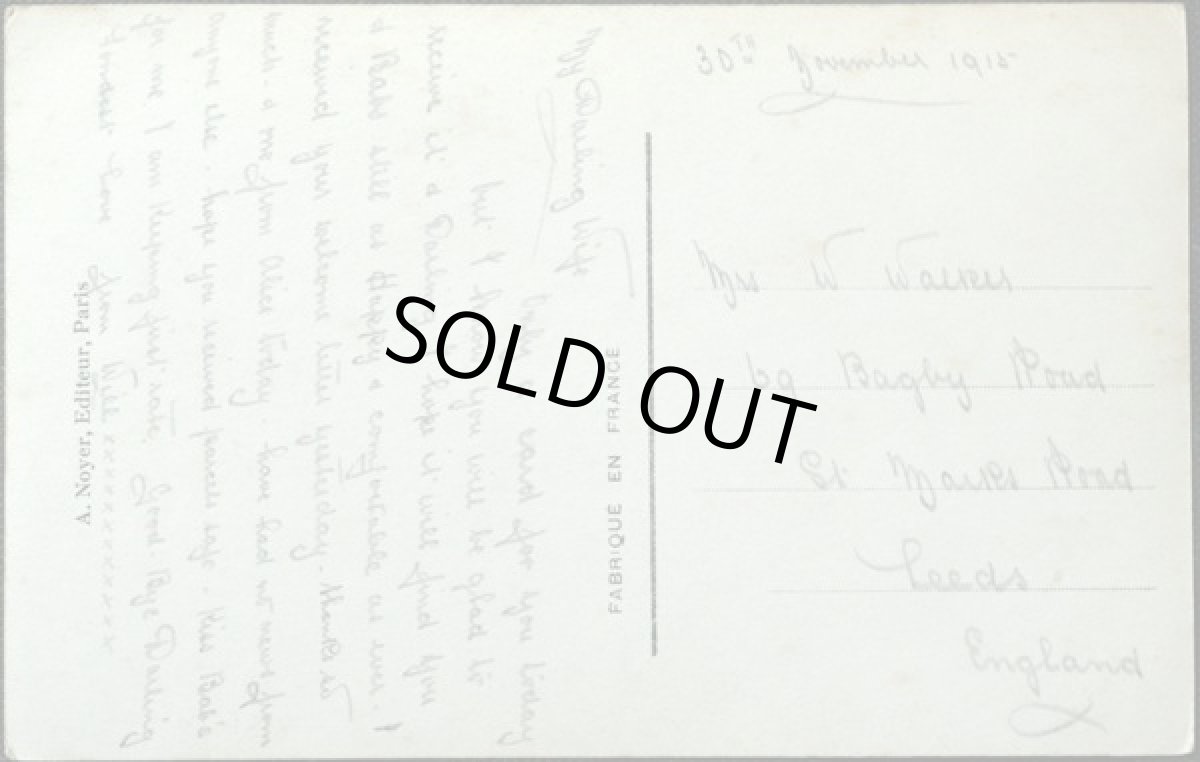 30TH November 1915
Mrs W Walker
Bagby Road
St Marks Road
Leeds
England
FABRIQUE EN FRANCE
My Darling Wife
card for you today
but I you will be glad to
receive it & Darling I hope it will find you
& Babs still as Happy & comfortable as ever. I
received your welcome letter yesterday. Thanks so
much & me from Alice today. have had no news from
anyone else. hope you received parcels safe. Kiss Babs
for me I am Keeping first rate. Good Bye Darling
Fondest Love from Will x x x x x x x x
A. Noyer, Editeur, Paris.
SOLD OUT